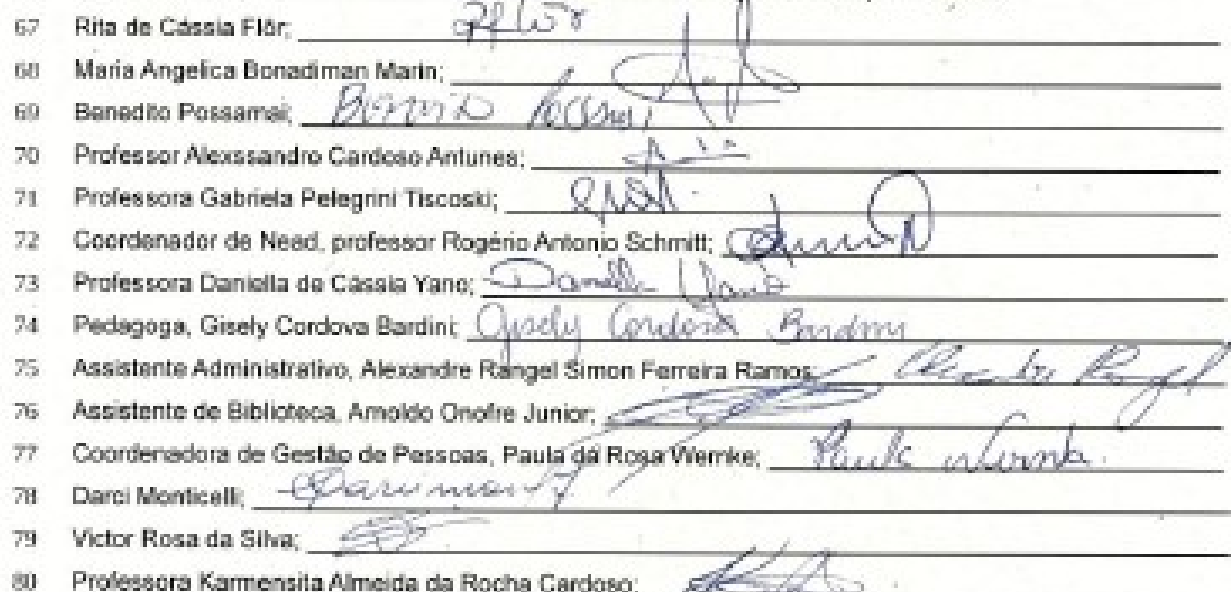 67 Rita de Cássia Flôr;
68 Maria Angelica Bonadiman Marin;
69 Benedito Possamai;
70 Professor Alexssandro Cardoso Antunes;
71 Professora Gabriela Pelegrini Tiscoski;
72 Coordenador de Nead, professor Rogério Antonio Schmitt;
73 Professora Daniella de Cássia Yano; Daniella Yano
74 Pedagoga, Gisely Cordova Bardini; Gisely Cordova Bardini
75 Assistente Administrativo, Alexandre Rangel Simon Ferreira Ramos; Alexandre Rangel
76 Assistente de Biblioteca, Arnoldo Onofre Junior;
77 Coordenadora de Gestão de Pessoas, Paula da Rosa Wernke; Paula Wernke
78 Darci Monticelli;
79 Victor Rosa da Silva;
80 Professora Karmensita Almeida da Rocha Cardoso;